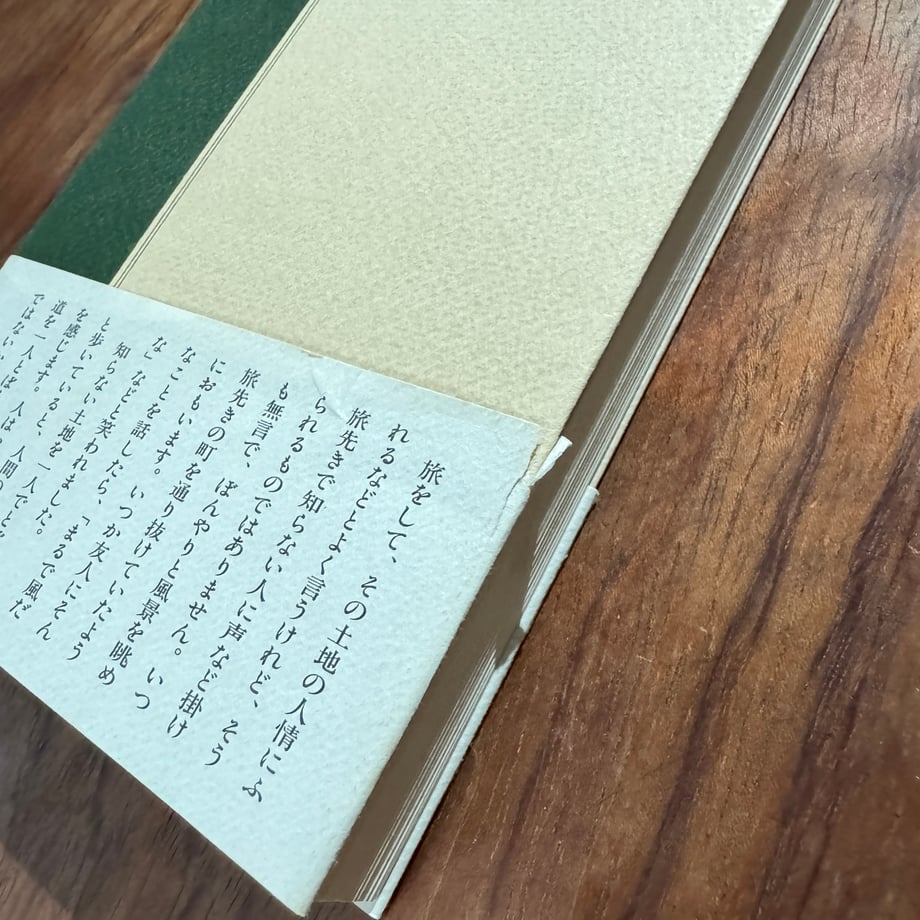 旅をして、その土地の人情にふ
れるなどとよく言うけれど、そう
旅先きで知らない人に声など掛け
られるものではありません。いつ
も無言で、ぼんやりと風景を眺め
旅先きの町を通り抜けていたよう
におもいます。いつか友人にそん
なことを話したら、「まるで風だ
な」などと笑われました。
知らない土地を一人でとぼとぼ
と歩いていると、人間の
を感じます。
道を一人とぼ
ではない